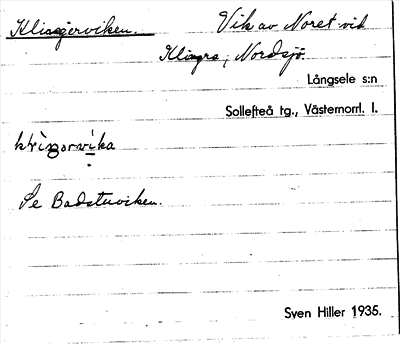 Klingerviken. Vik av Noret vid
Klingra, Nordsjö.
Långsele s:n
Sollefteå tg., Västernorrl. l.
Se Badstuviken.
Sven Hiller 1935.